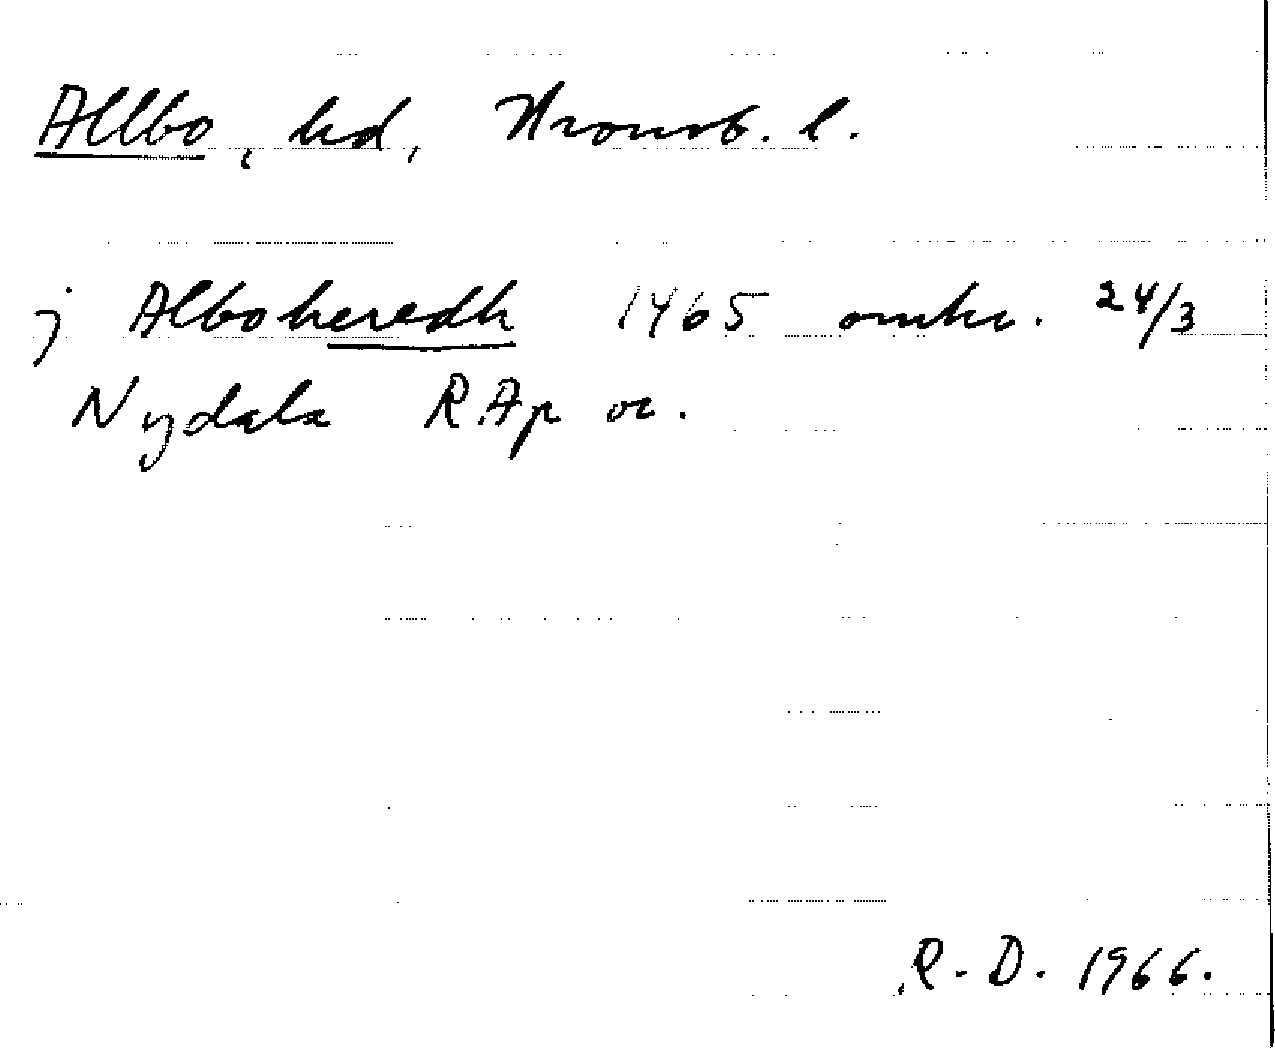 Allbo, hd, Kronob. l.
j Alboheredh 1465 omkr. 24/3
Nydala RAp or.
R-D. 1966.